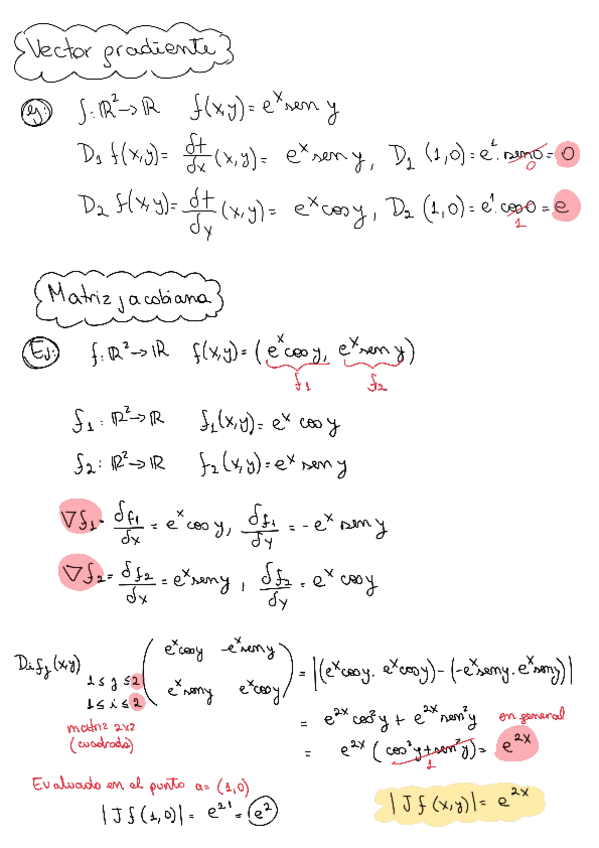 Vector gradiente
ej: f: ℝ² → ℝ f(x,y) = e^x sen y
D₁ f(x,y) = δf/δx (x,y) = e^x sen y, D₁ (1,0) = e¹. sen 0 = 0
0
D₂ f(x,y) = δf/δy (x,y) = e^x cos y, D₂ (1,0) = e¹. cos 0 = e
1
Matriz jacobiana
Ej: f: ℝ² → ℝ f(x,y) = (e^x cos y, e^x sen y)
f₁ f₂
f₁ : ℝ² → ℝ f₁(x,y) = e^x cos y
f₂ : ℝ² → ℝ f₂(x,y) = e^x sen y
∇f₁ = δf₁/δx = e^x cos y, δf₁/δy = - e^x sen y
∇f₂ = δf₂/δx = e^x sen y, δf₂/δy = e^x cos y
e^x cos y -e^x sen y
Difj (x,y) = |(e^x cos y . e^x cos y) - (-e^x sen y . e^x sen y)|
1 ≤ j ≤ 2
e^x sen y e^x cos y
1 ≤ i ≤ 2
matriz 2x2
(cuadrada)
= e^2x cos² y + e^2x sen² y en general
= e^2x (cos² y + sen² y) = e^2x
1
Evaluado en el punto a = (1,0)
|Jf (1,0)| = e^2·1 = e²
|Jf (x,y)| = e^2x